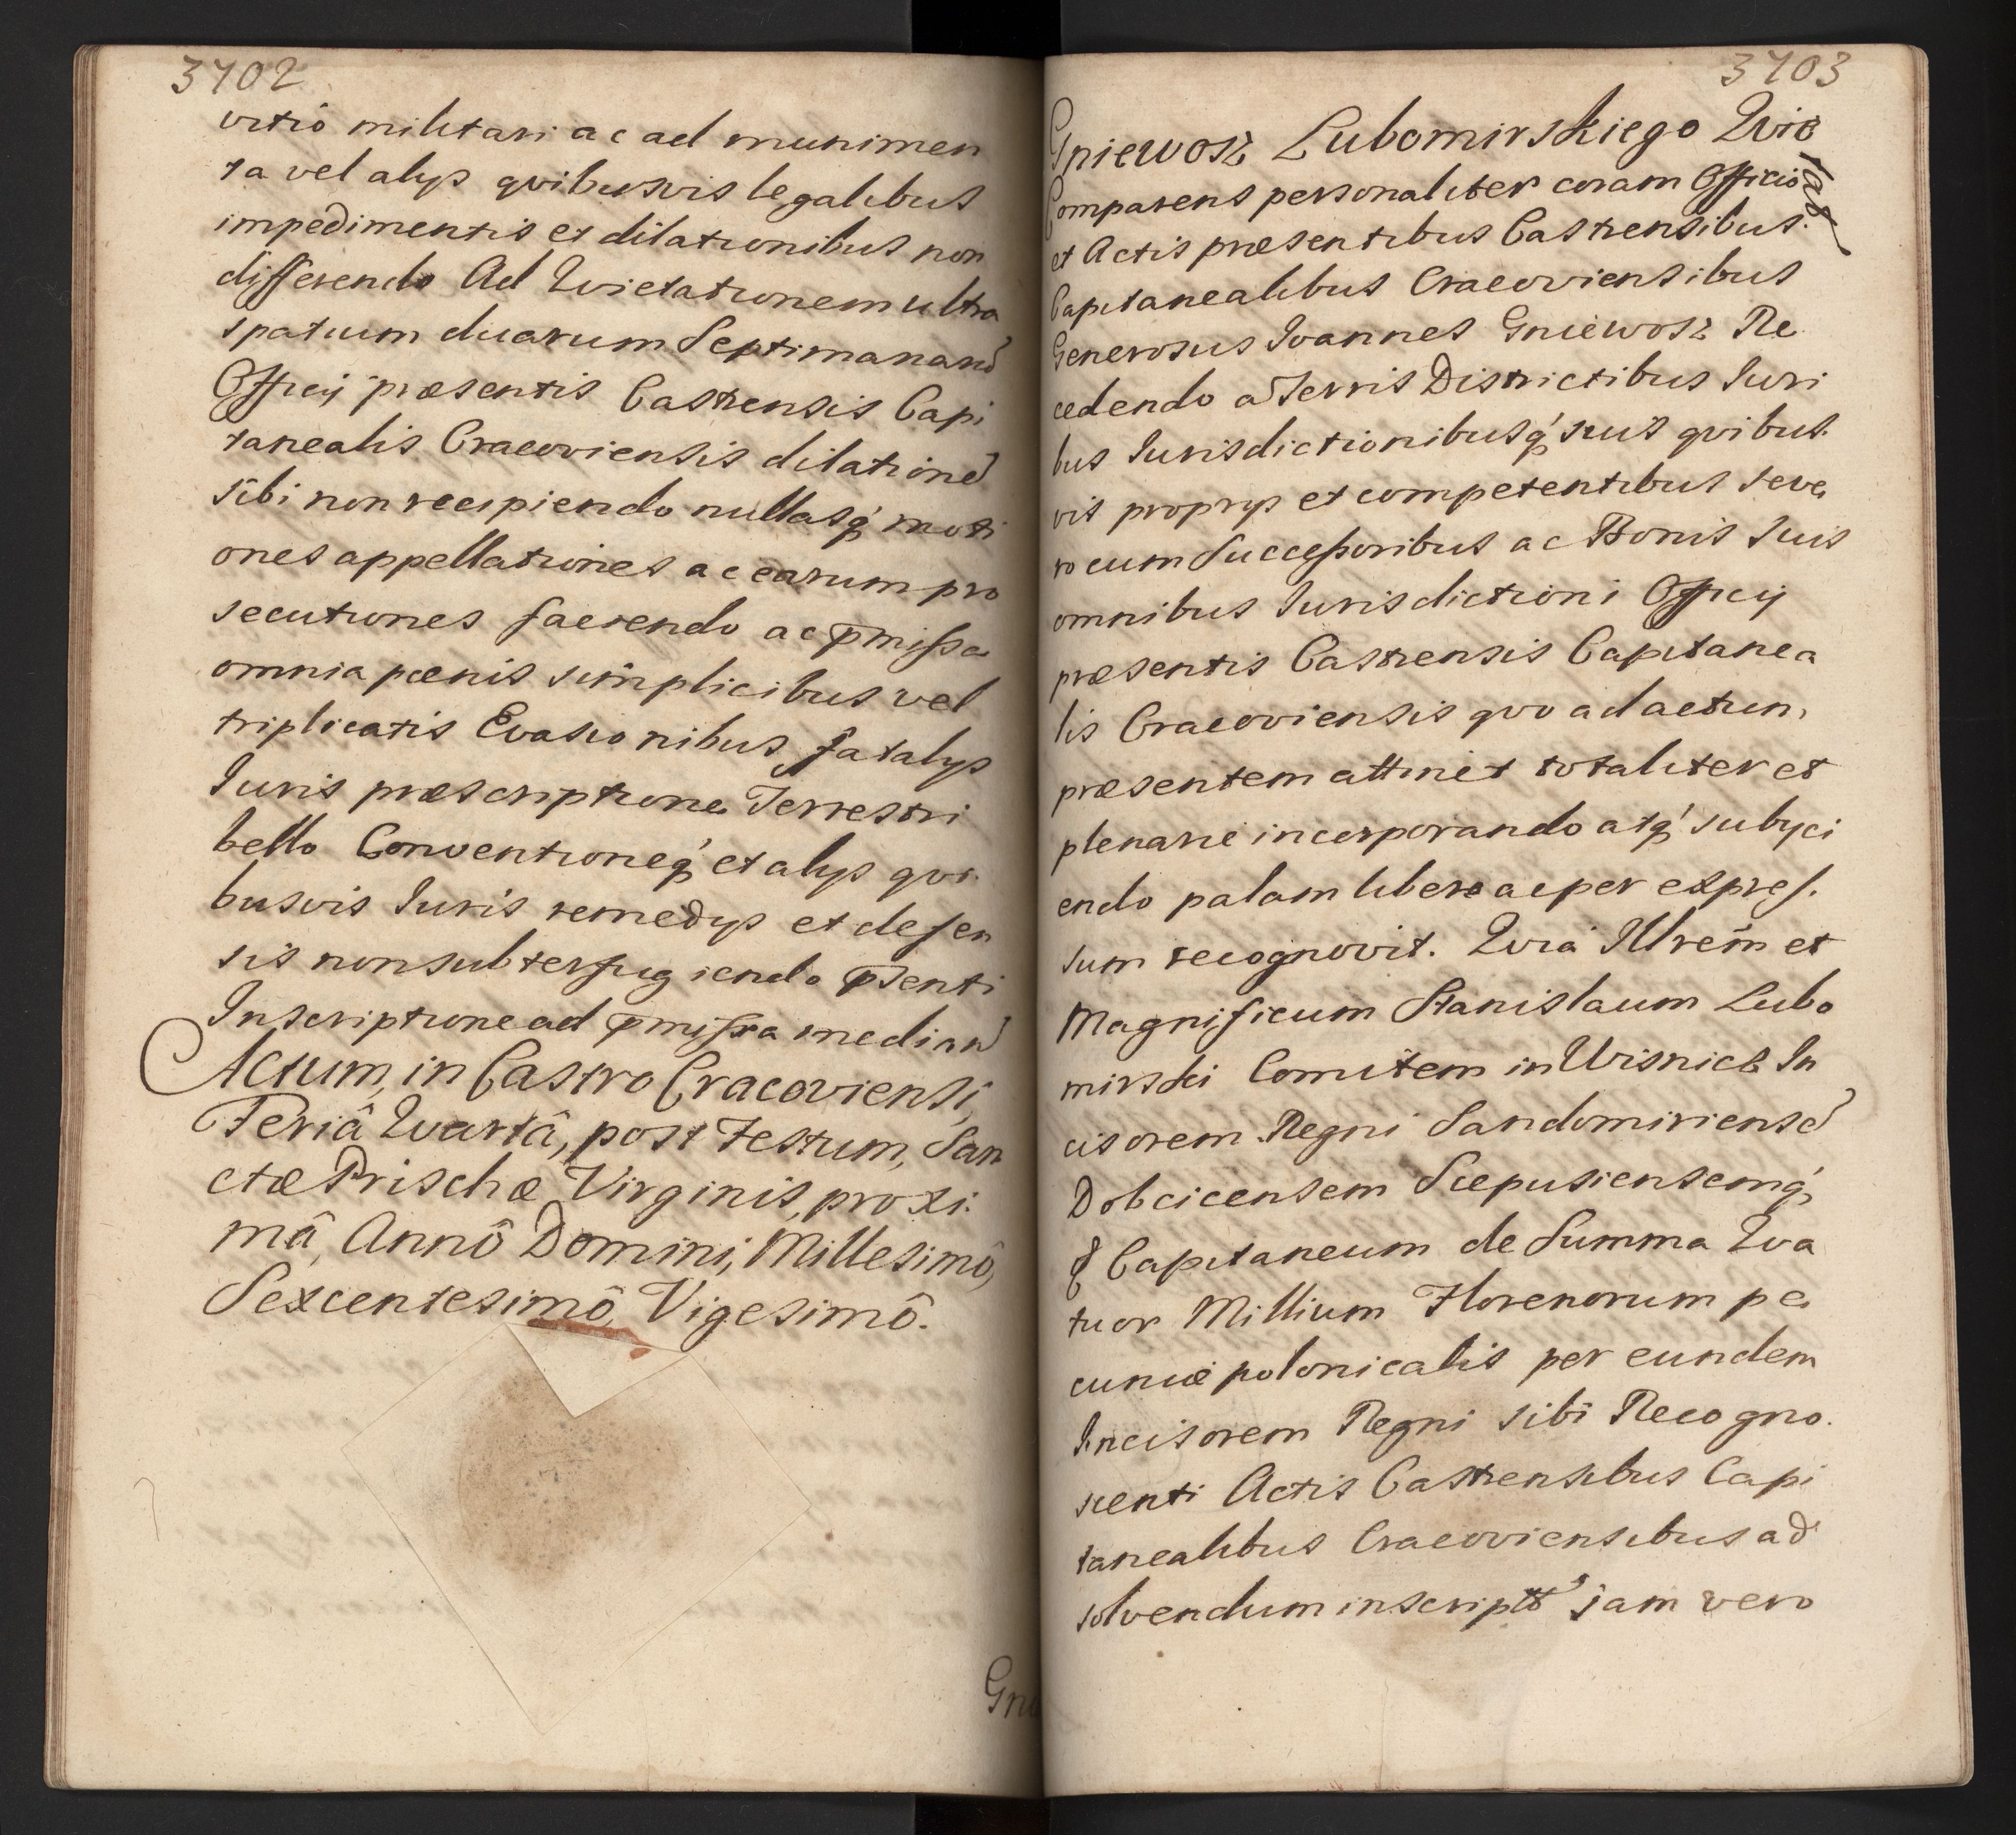 3702
vitio militari ac ad munimen
ta vel alys qvibusvis legalibus
impedimentis et dilationibus non
differendo Ad Qvietationem ultra
spatium duarum Septimanarũ
Officij præsentis Castrensis Capi
tanealis Cracoviensis dilationẽ
sibi non recipiendo nullasq́ moti
ones appellationes ac earum pro
secutiones faciendo ac p̃missa
omnia pœnis simplicibus vel
triplicatis Evasionibus fatalys
Iuris præscriptione Terrestri
bello Conventioneq́ et alys qvi
busvis Iuris remedys et defen
sis non subterfugiendo p̃senti
Inscriptione ad p̃missa median̄
Actum, in Castro Cracoviensi,
Feriâ Qvartâ, post Festum, San
ctæ Prischæ Virginis, proxi.
mâ, Annô Domini, Millesimô,
Sexcentesimô, Vigesimô.
Gni
3703
Gniewosz Lubomirskiego Qvie
tat
Comparens personaliter coram Officio
et Actis præsentibus Castrensibus.
Capitanealibus Cracoviensibus
Generosus Ioannes Gniewosz Re
cedendo a Terris Districtibus Iuri
bus Iurisdictionibusq́ suis qvibus.
vis proprys et competentibus seve
ro cum Successoribus ac Bonis Suis
omnibus Iurisdictioni Officij
præsentis Castrensis Capitanea
lis Cracoviensis qvo ad actum,
præsentem attinet totaliter et
plenarie incorporando atq́ subyci
endo palam libere ac per expres.
sum recognovit. Qvia Illrem̃ et
Magnificum Stanislaum Lubo
mirski Comitem in Wisnicz In
cisorem Regni Sandomiriensẽ
Dobcicensem Scepusiensemq́
& Capitaneum de Summa Qva
tuor Millium Florenorum pe
cuniæ polonicalis per eundem
Incisorem Regni sibi Recogno.
scenti Actis Castrensibus Capi
tanealibus Cracoviensibus ad
solvendum inscripto jam vero